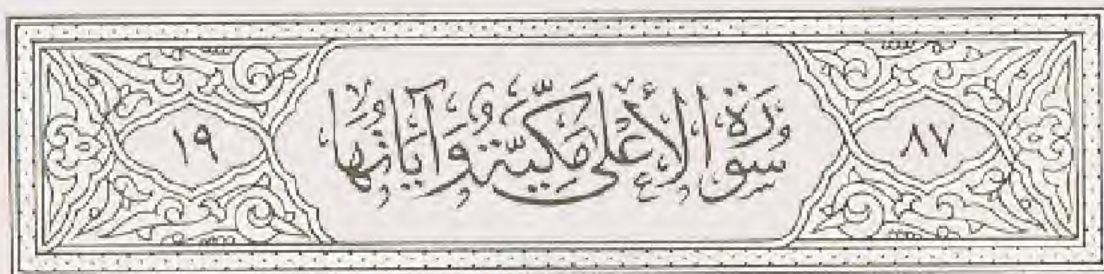 ٨٧ سُورَةُ الأَعْلَى مَكِيَّةٌ وَآيَاتُهَا ١٩